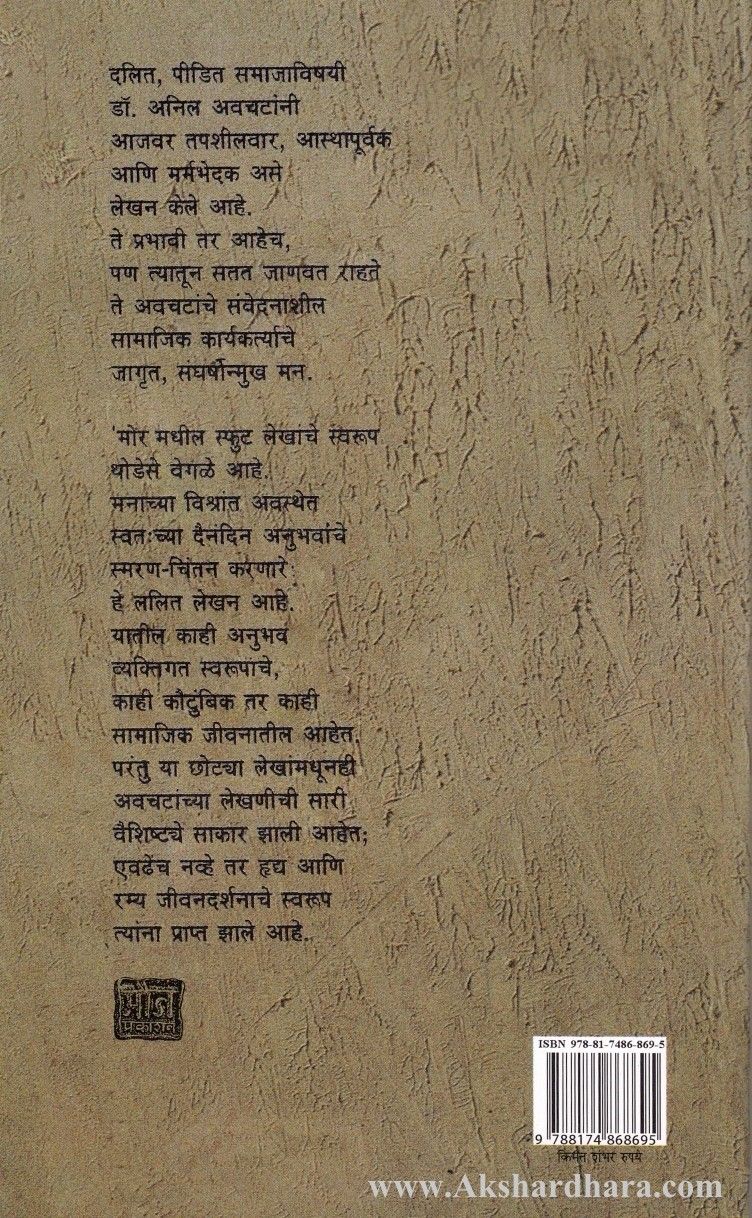 दलित, पीडित समाजाविषयी
डॉ. अनिल अवचटांनी
आजवर तपशीलवार, आस्थापूर्वक
आणि मर्मभेदक असे
लेखन केले आहे.
ते प्रभावी तर आहेच,
पण त्यातून सतत जाणवत राहते
ते अवचटांचे संवेदनाशील
सामाजिक कार्यकर्त्याचे
जागृत, संघर्षोन्मुख मन.
'मोर मधील स्फुट लेखांचे स्वरूप
थोडेसे वेगळे आहे.
मनाच्या विश्रांत अवस्थेत
स्वतःच्या दैनंदिन अनुभवांचे
स्मरण-चिंतन करणारे
हे ललित लेखन आहे.
यातील काही अनुभव
व्यक्तिगत स्वरूपाचे,
काही कौटुंबिक तर काही
सामाजिक जीवनातील आहेत.
परंतु या छोट्या लेखांमधूनही
अवचटांच्या लेखणीची सारी
वैशिष्ट्ये साकार झाली आहेत;
एवढेच नव्हे तर हृद्य आणि
रम्य जीवनदर्शनाचे स्वरूप
त्यांना प्राप्त झाले आहे.
मौज
प्रकाशन
ISBN 978-81-7486-869-5
9 788174 868695
किंमत शंभर रुपये
www.Akshardhara.com